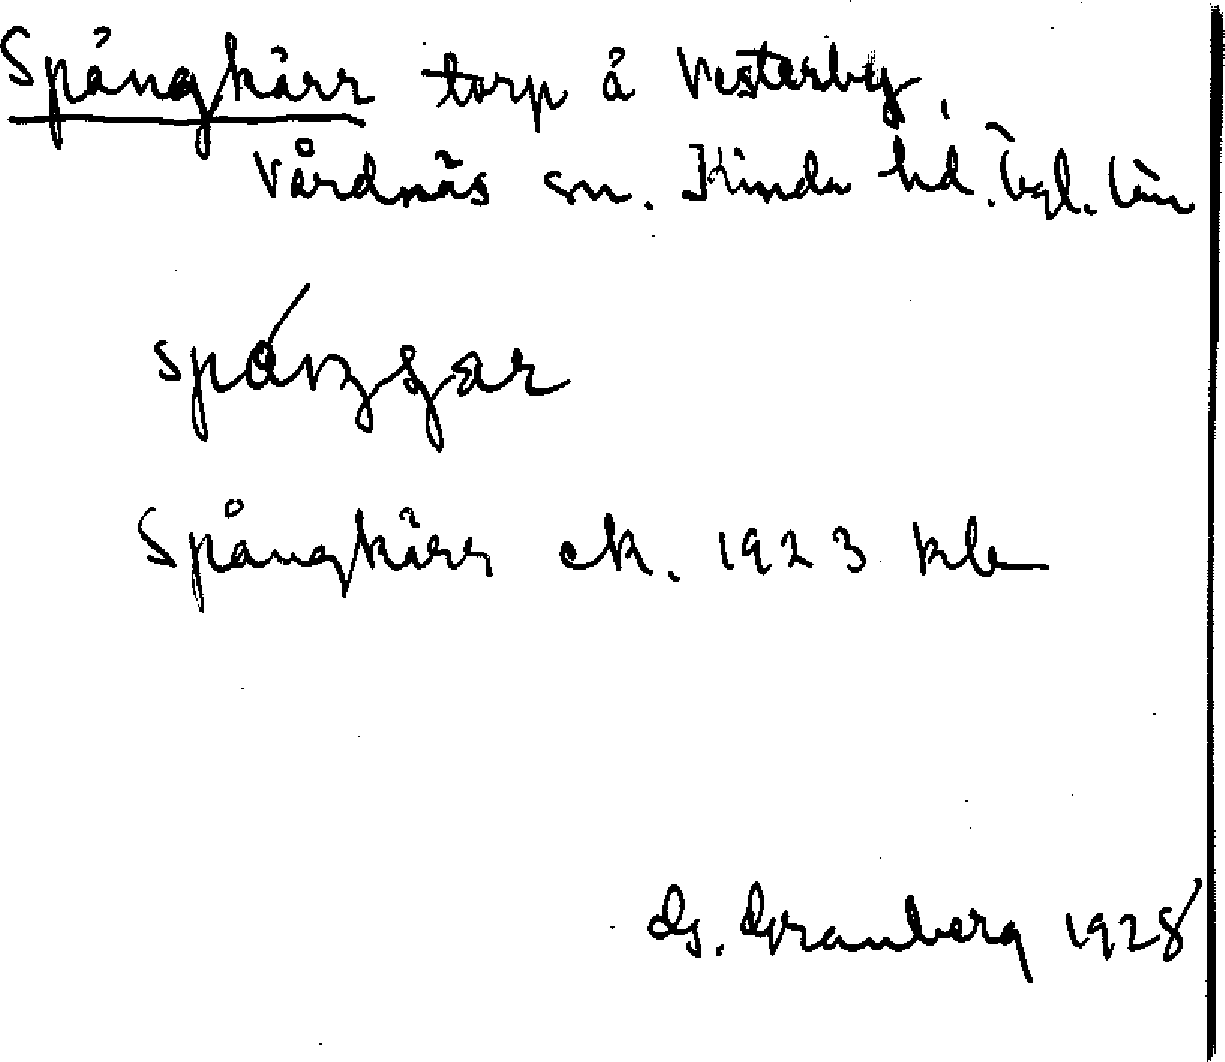 Spångkärr torp å Västerby,
Vårdnäs sn. Kinda hd. Ögl. län
Spångkärr ek. 1923 kbr
G. Granberg 1928